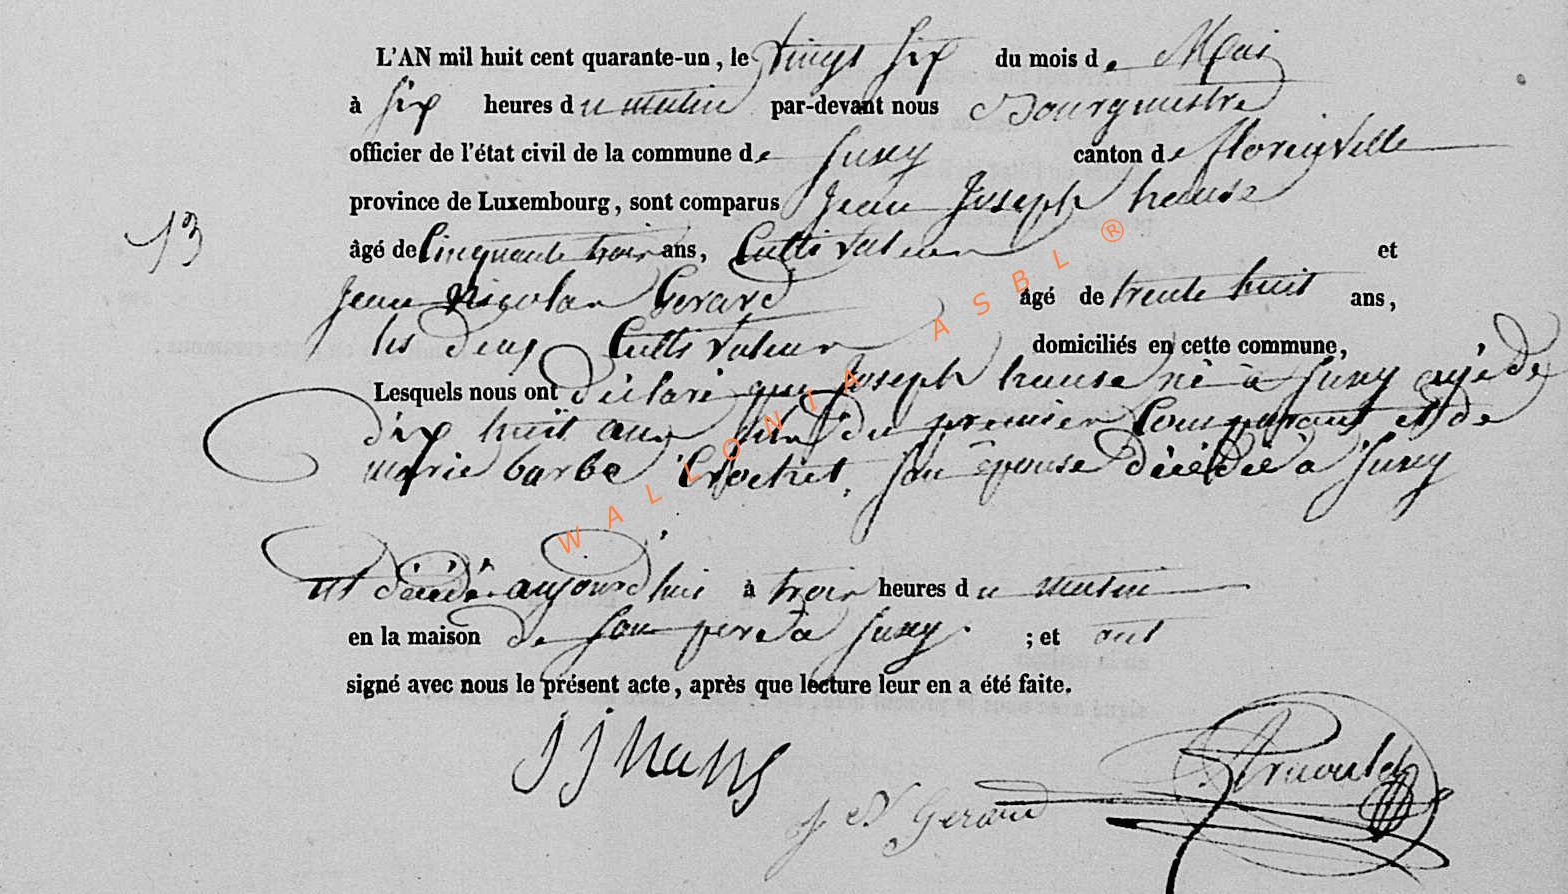 L'AN mil huit cent quarante-un, le vingt six du mois de Mai
à six heures du matin par-devant nous Bourgmestre
officier de l'état civil de la commune de Suxy canton de florenville
province de Luxembourg, sont comparus Jean Joseph hanse
13
âgé de Cinquante trois ans, Cultivateur et
Jean Nicolas Gerard âgé de trente huit ans,
les deux Cultivateur domiciliés en cette commune,
Lesquels nous ont déclaré que Joseph hanse né à Suxy agé de
dix huit ans fils du premier Comparant et de
marie barbe Crochet, son épouse décédée à Suxy
est décédé aujourd'hui à trois heures du matin
en la maison de son pere à Suxy ; et ont
signé avec nous le présent acte, après que lecture leur en a été faite.
J J Hans
J N Gerard
Arnould
WALLONIA ASBL ®